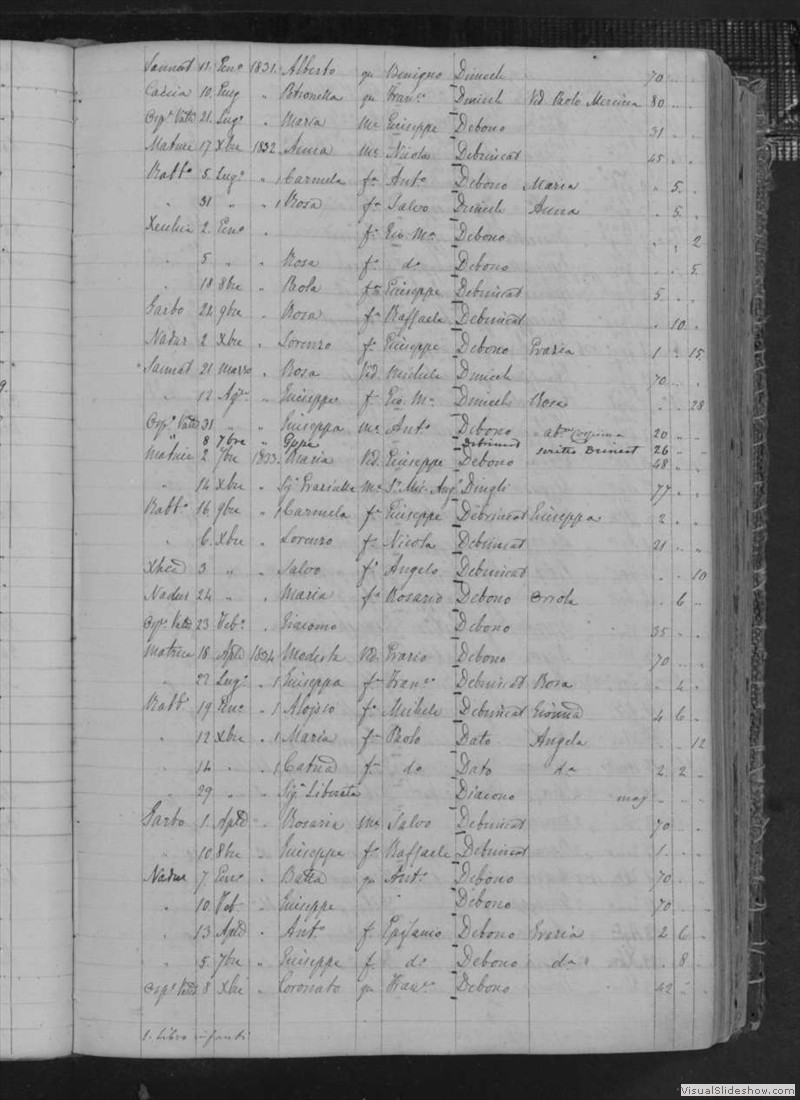 Sannat 11 Enº 1831. Alberto qu Benigno Dimech 70 " "
Caccia 10 Lug " Petronella qu Franº Dimech Vid Paolo Mercieca 80 " "
Ospº Vittª 21 Lugº " Maria mº Giuseppe Debono 31 " "
Matrice 17 Xbre 1832 Anna mº Nicolas Debrincat 45 " "
Rabbº 5 Lugº " 1 Carmela fª Antº Debono Maria " 5 "
" 31 " 1 Rosa fª Salvo Dimech Anna " 5 "
Xeuchia 2 Enº " fª Gio Mª Debono " " 2
" 5 " " Rosa fª do Debono " " 5
" 18 8bre " Paola fª Giuseppe Debrincat 5 " "
Garbo 24 9bre " Rosa fª Raffaele Debrincat " 10 "
Nadur 2 Xbre " Lorenzo fº Giuseppe Debono Grazia 1 " 15
Sannat 21 Marzo " Rosa Vid. Michele Dimech 70 " "
" 12 Agº " Giuseppe f Gio Mª Dimech Rosa " " 28
Ospº Vittª 31 " " Giuseppa mº Antº Debono 20 " "
" 8 7bre " Gppe Debrincat 26 " "
Matrice 2 7bre 1833. Maria Vid. Giuseppe Debono 48 " "
" 14 Xbre " Dingli 77 " "
Rabbº 16 9bre " 1 Carmela fª Giuseppe Debrincat Giuseppa 2 " "
" 6 Xbre " Lorenzo fº Nicola Debrincat 21 " "
3 " " Salvo fº Angelo Debrincat " " 10
Nadur 24 " " Maria fª Rosario Debono Orsola " 6 "
Ospº Vittª 23 Febº " Giacomo Debono 35 " "
Matrice 18 Aple 1834 Modesta Vid. Grazio Debono 70 " "
" 22 Lugº " 1 Giuseppa fª Franº Debrincat Rosa " 4 "
Rabbº 19 Enº " 1 Aloisio fº Michele Debrincat Giovna 4 6 "
" 12 Xbre " 1 Maria fª Paolo Dato Angela " " 12
" 14 " " 1 Catna fª do Dato da 2 2 "
" 29 " " Sigª Liberata Diacono mag " " "
Garbo 1 Aple " Rosaria mº Salvo Debrincat 70 " "
" 10 8bre " Giuseppe fº Raffaele Debrincat 1 " "
Nadur 7 Enº " Batta qu Antº Debono 70 " "
" 10 Feb " Giuseppe " Debono 70 " "
" 13 Aple " Antº f. Epifanio Debono Grazia 2 6 "
" 5 7bre " Giuseppe f. do Debono da " 8 "
Ospº Vittª 8 Xbre " Coronato qu Franº Debono 42 " "
1. Libro infanti
VisualSlideshow.com